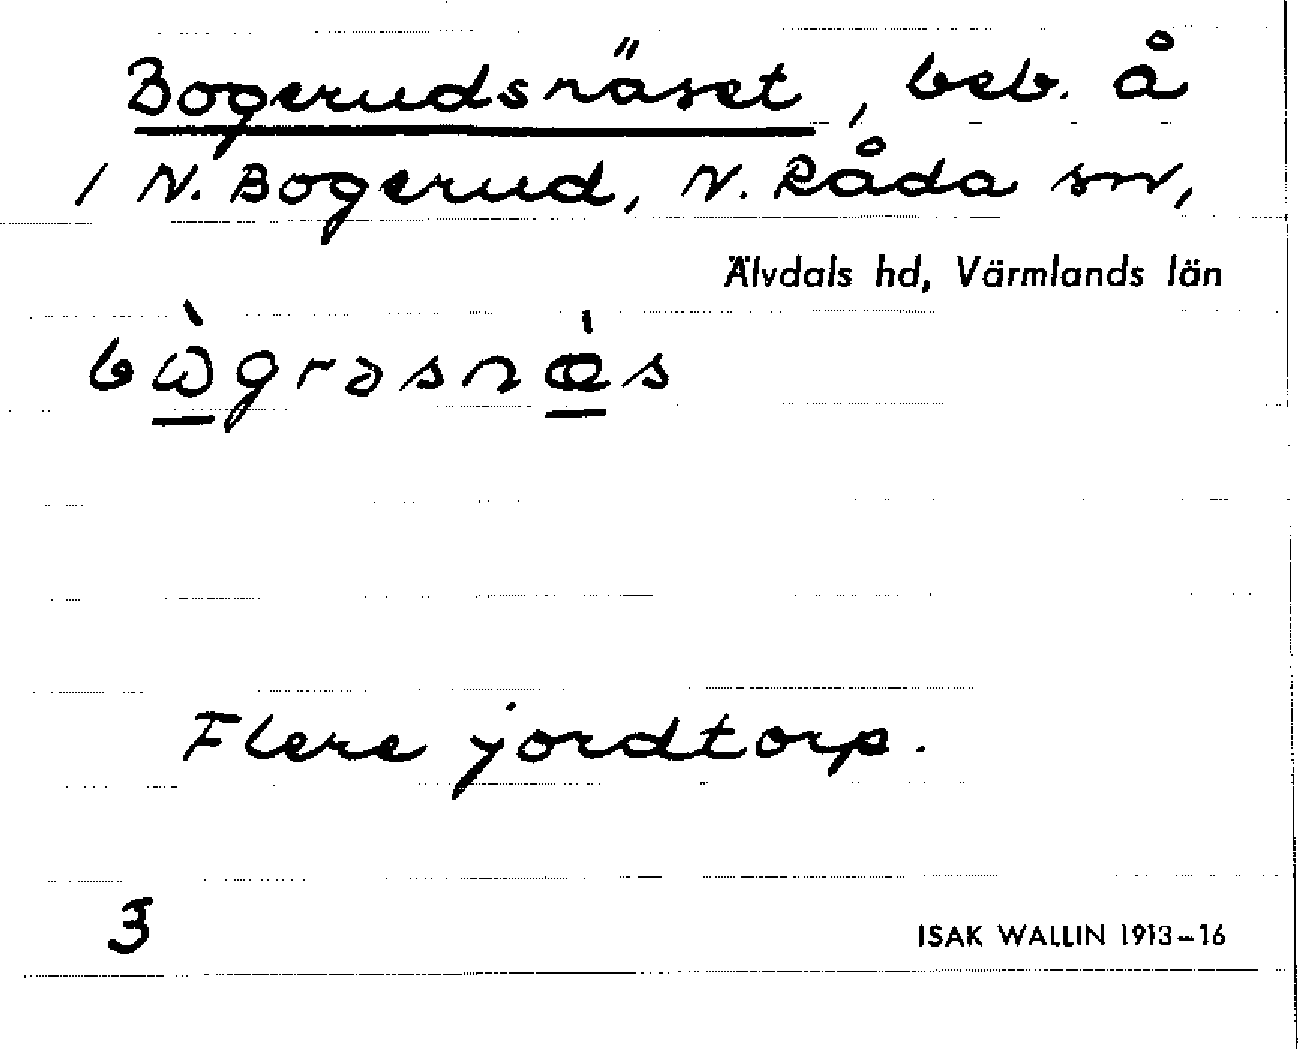 Bogerudsnäset, beb. å
1 N. Bogerud, N. Råda sn,
Älvdals hd, Värmlands län
bὼ̱grəsnæ̱̀s
Flere jordtorp.
3
ISAK WALLIN 1913–16